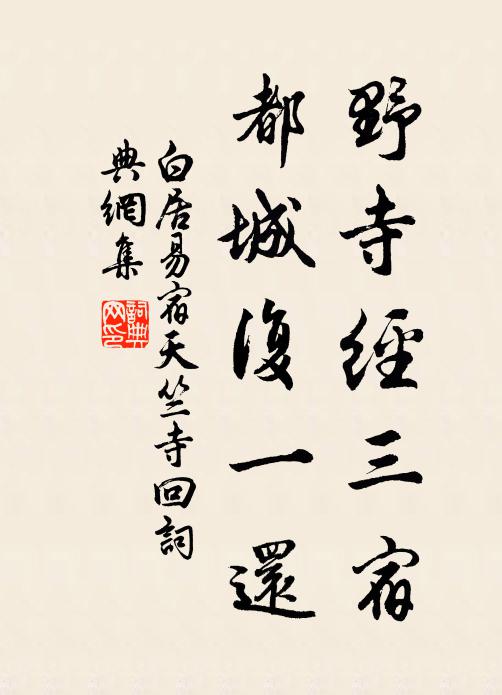 野寺經三宿
都城復一還
白居易宿天竺寺回詞
典網集
詞典
网印